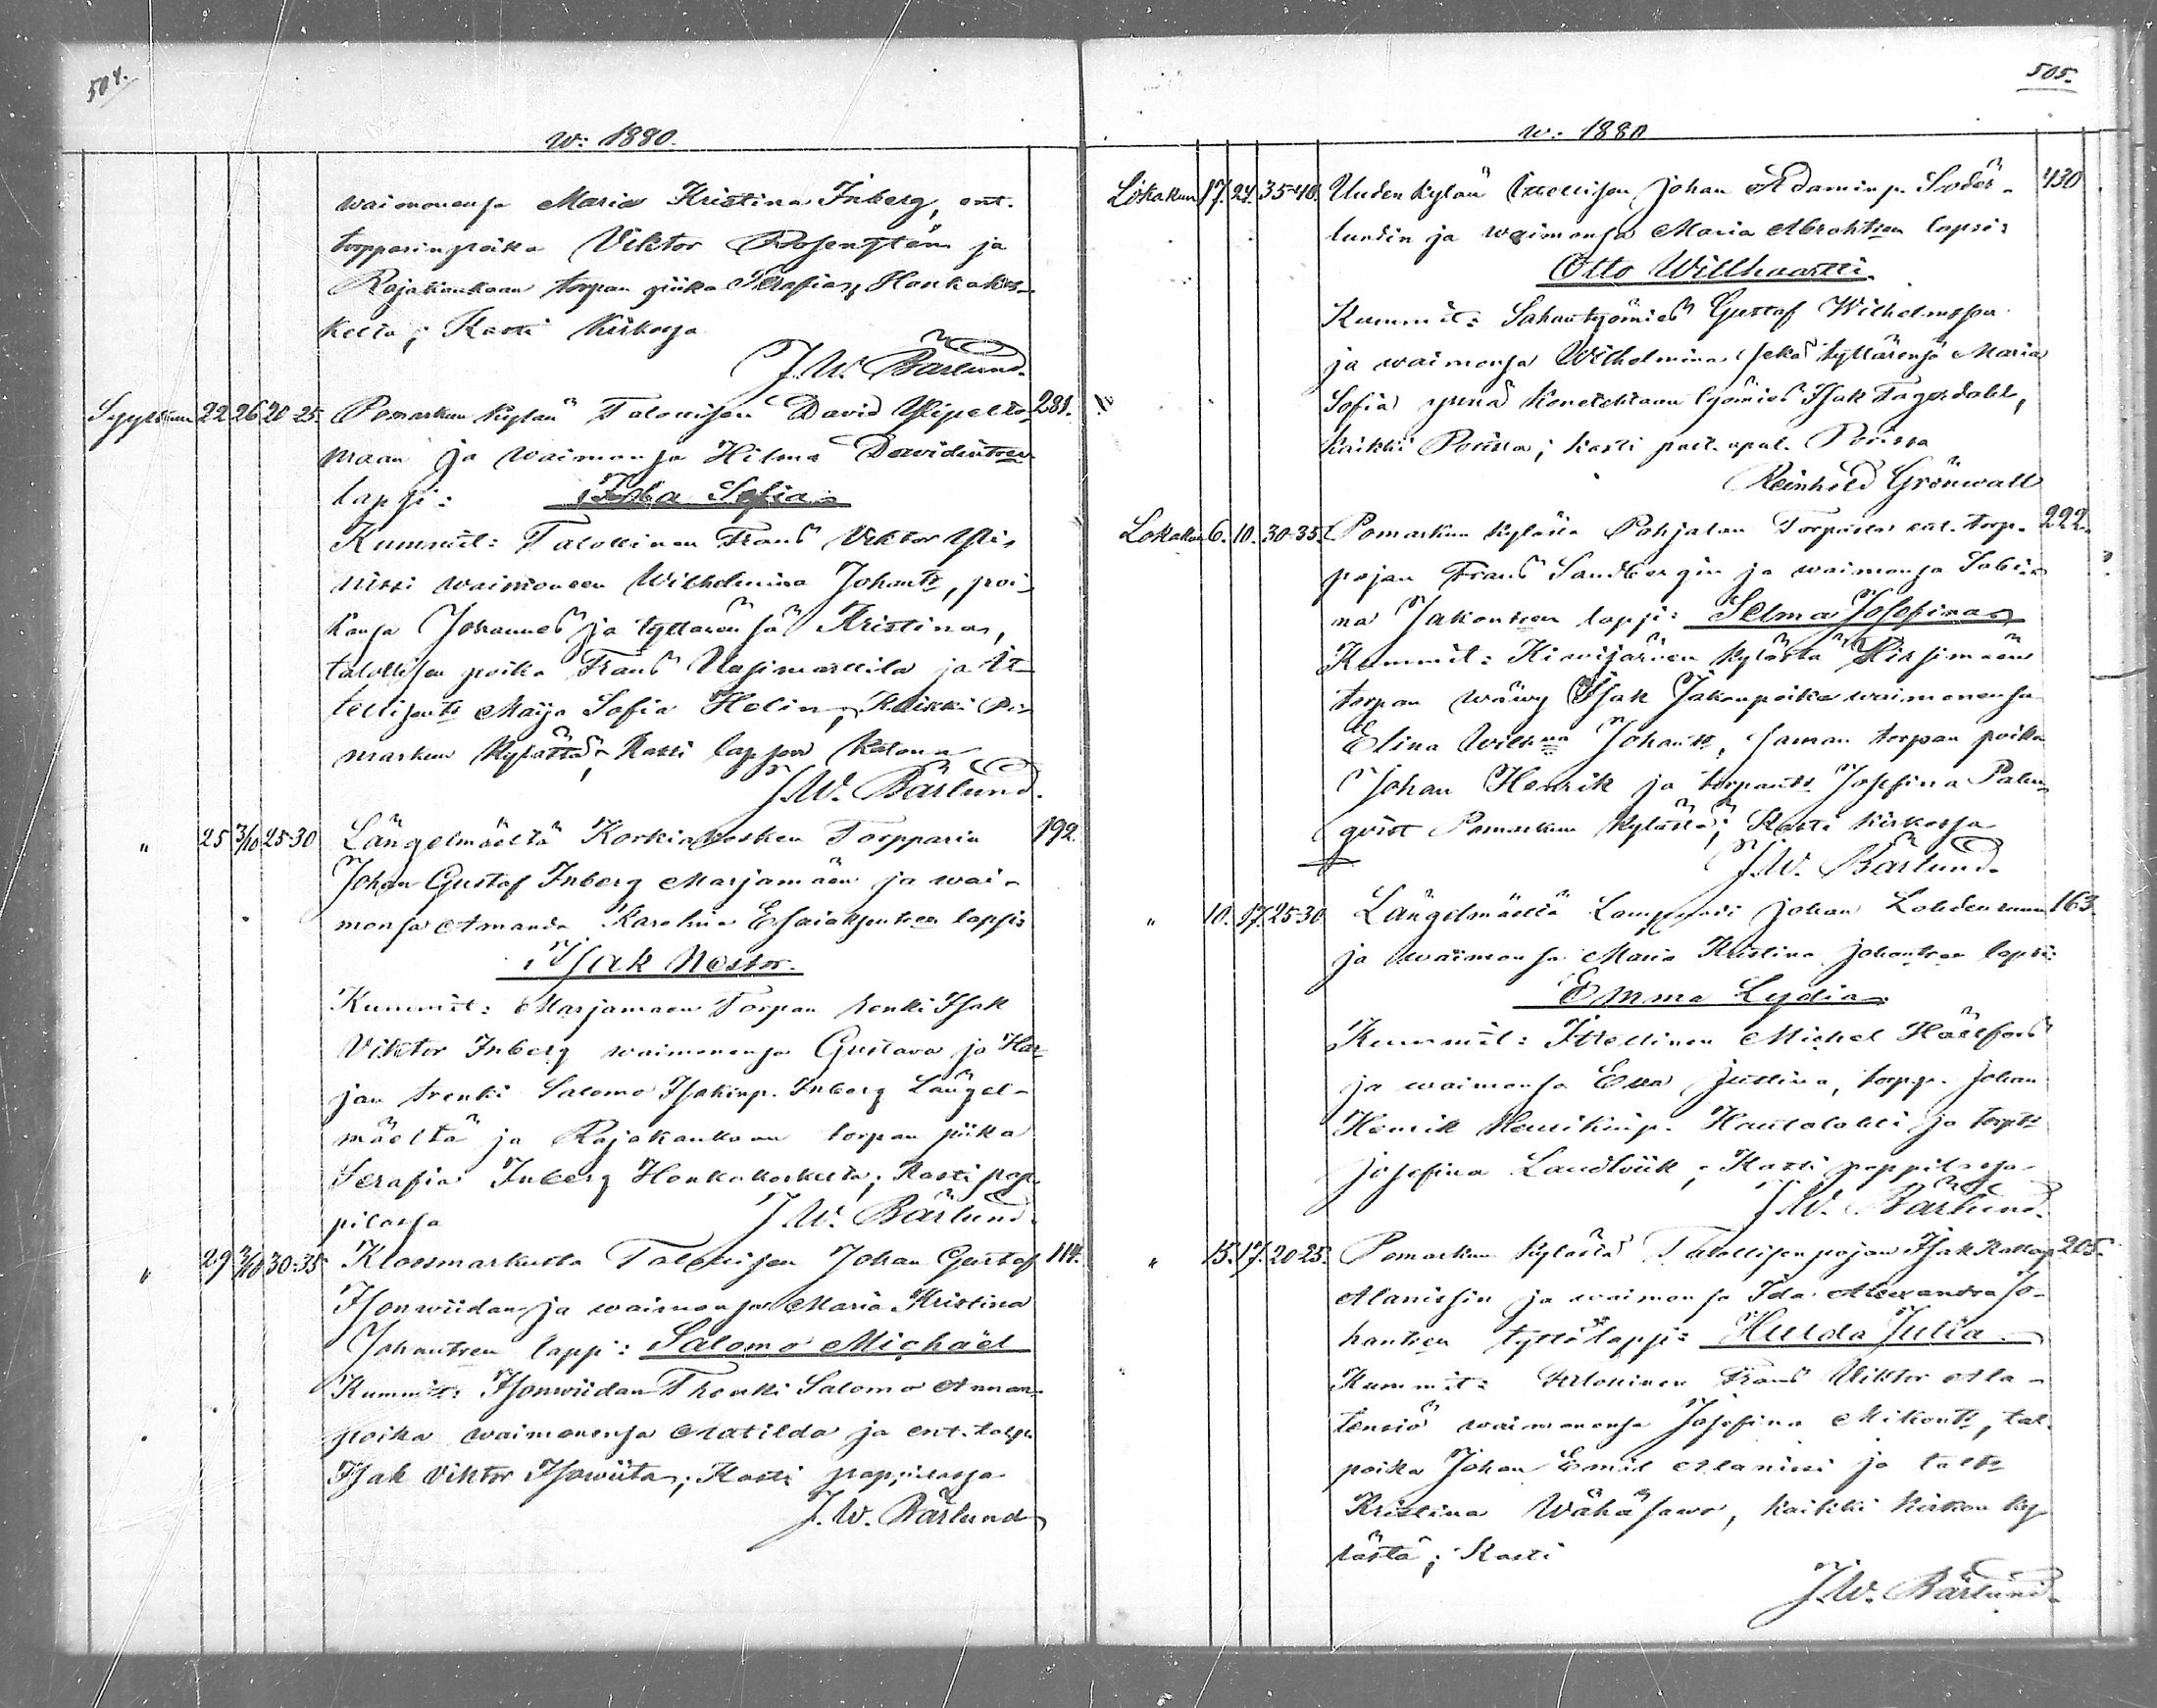 504.
w: 1880.
waimonensa Maria Kristina Inberg, ent.
torpparinpoika Viktor Rosenstén ja
Rajakankaan torpan piika Serafia, Honkakos-
kelta; Kasti kirkossa
J. W. Bärlund.
Syyskuun 22 26 20-25. Pomarkun kylän Talollisen David Ylipelto- 281.
maan ja waimonsa Hilma Davidintren
lapsi: Ida Sofia
Kummit: Talollinen Frans Viktor Yli-
nissi waimoneen Wilhelmina Johantr, poi-
kansa Johannes ja tyttärensä Kristina,
talollisen poika Frans Uusimarttila ja It-
tellisentr Maija Sofia Helin, Kaikki Po-
markun kylästä; Kasti lapsen kotona
J. W. Bärlund.
" 25 3/10 25-30 Längelmäeltä Korkiakosken Torpparin 192.
Johan Gustaf Inberg Marjamäen ja wai-
monsa Amanda Karolina Esaiaksentren lapsi:
Isak Nestor.
Kummit: Marjamäen Torpan renki Isak
Viktor Inberg waimonensa Gustava ja Har-
jan trenki Salomo Isakinp. Inberg Längel-
mäeltä ja Rajakankaan torpan piika
Serafia Inberg Honkakoskelta; Kasti pap-
pilassa J. W. Bärlund.
" 29 3/10 30-35 Klaasmarkusta Talollisen Johan Gustaf 114.
Isonwiidan ja waimonsa Maria Kristina
Johantren laps: Salomo Michaël
Kummit: Isonwiidan Trenki Salomo Annan-
poika waimonensa Matilda ja ent. torp.
Isak Viktor Isowiita; Kasti pappilassa
J. W. Bärlund
505.
w: 1880
Lokakuun 17. 24. 35-40. Uudenkylän Itsellisen Johan Adaminp. Söder- 430
lundin ja waimonsa Maria Abrahtren lapsi:
Otto Willhartti.
Kummit: Sahantyömies Gustaf Wilhelmsson
ja waimonsa Wilhelmina sekä tyttärensä Maria
Sofia ynnä Konetehtaan työmies Isak Fagerdahl,
kaikki Porissa; kasti past. apul. Porissa
Reinhold Grönwall
Lokakuun 6. 10. 30-35. Pomarkun kylästä Pohjalan Torpasta ent. torp. 222.
pojan Frans Sandbergin ja waimonsa Sabi-
na Jakontren lapsi: Selma Josefina
Kummit: Kiwijärwen kylästä Hirsimäen
torpan wäwy Isak Jakonpoika waimonensa
Elina Wilhna Johantr, saman torpan poika
Johan Henrik ja torpantr Josefina Palm-
qvist Pomarkun kylästä; Kasti kirkossa
J. W. Bärlund.
" 10. 17. 25-30 Längelmäeltä Lampuodi Johan Lahdenranna 163.
ja waimonsa Maria Kristina Johantren lapsi:
Emma Lydia.
Kummit: Itsellinen Michel Hällfors
ja waimonsa Ewa Justina, torpp. Johan
Henrik Henrikinp. Hautalahti ja torptr
Josefina Landwik; Kasti pappilassa
J. W. Bärlund.
" 15. 17. 20-25. Pomarkun kylästä Talollisen pojan Isak Kallenp. 205.
Alanissin ja waimonsa Ida Alexandra Jo-
hantren tyttölapsi: Hulda Julia
Kummit: Talollinen Frans Viktor Ala-
tensiö waimonensa Josefina Mikontr, tal.
poika Johan Emil Alanissi ja taltr
Kristina Wähäsawo, kaikki kirkon ky-
lästä; Kasti
J. W. Bärlund.